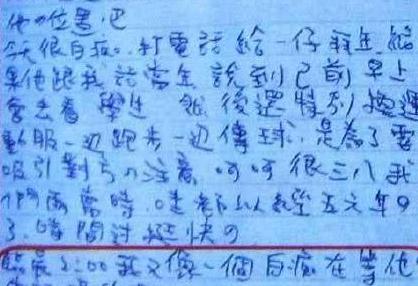 他の位置吧
今天很白痴。打電話給一仔祝生
果他跟我說當年說到已前早上
會去看學生 然後還特別換運
動服一边跑步一边傳球,是為了要
吸引對方の注意 呵呵很三八我
們兩當時 哇都以經是五六年の
了,時間過挺快の
2:00我又像一個白痴在等他